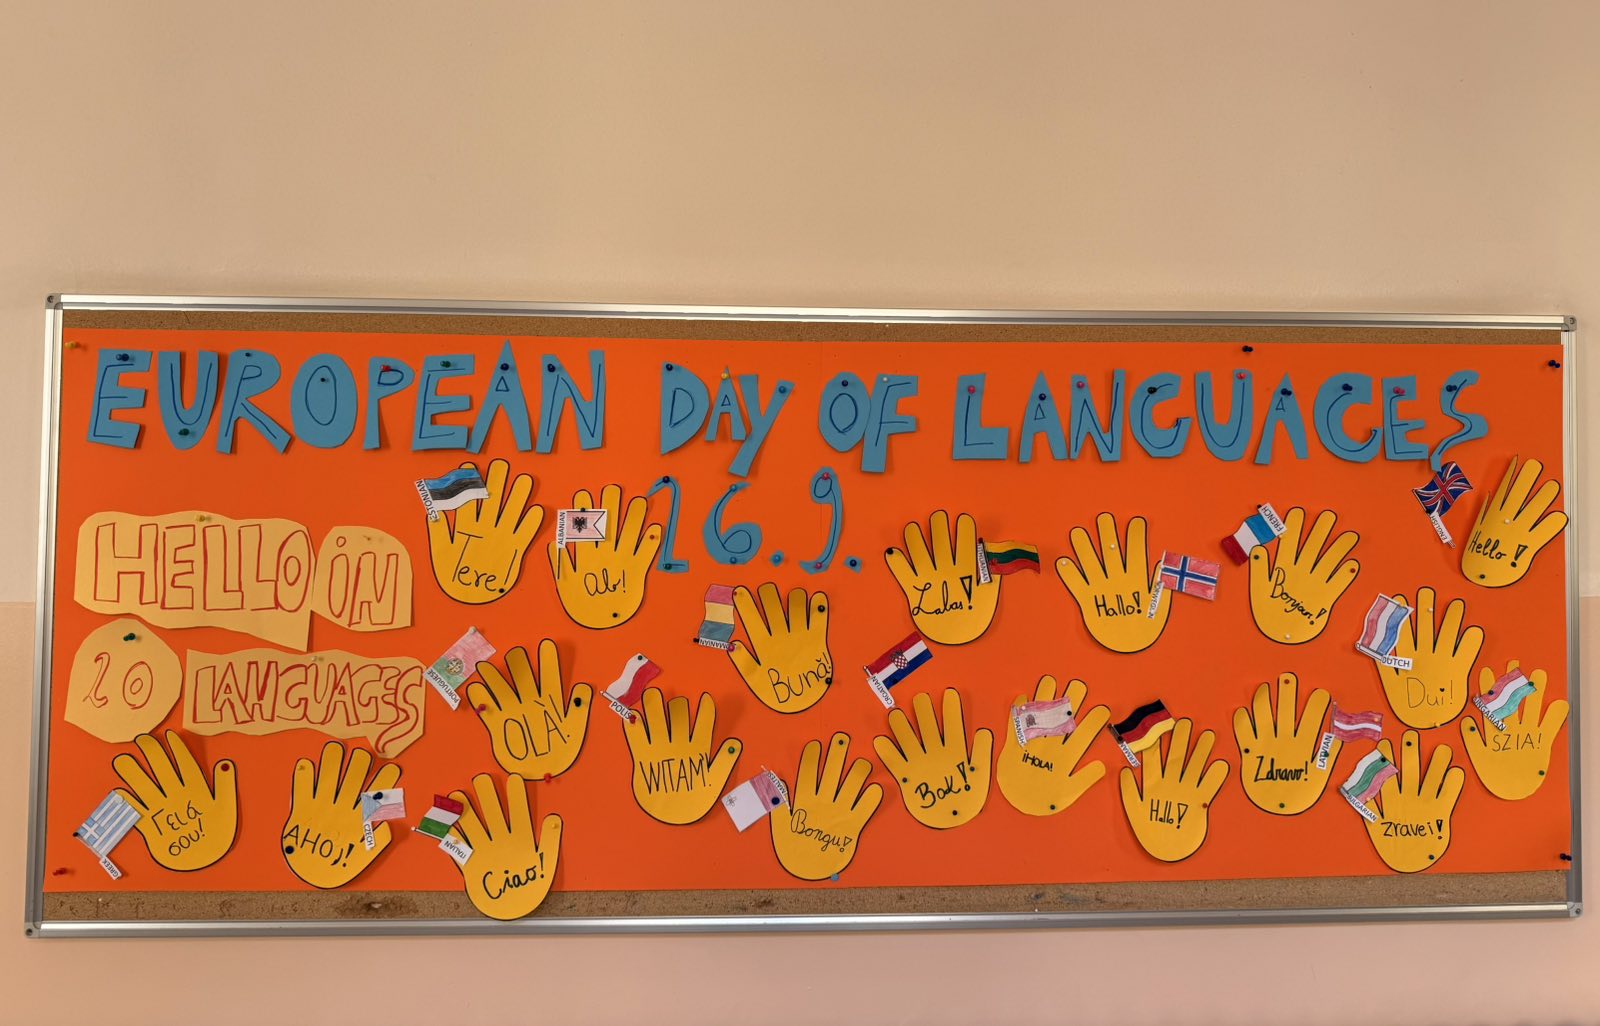 EUROPEAN DAY OF LANGUAGES
26. 9.
HELLO IN
20 LANGUAGES
ESTONIAN
Tere!
ALBANIAN
LITHUANIAN
Labas!
Hallo!
NORWEGIAN
FRENCH
Bonjour!
ENGLISH
Hello!
PORTUGUESE
OLÀ!
POLISH
WITAM!
ROMANIAN
Bună!
CROATIAN
Bok!
SPANISH
¡HOLA!
GERMAN
Hallo!
LATVIAN
Zdravo!
DUTCH
HUNGARIAN
SZIA!
GREEK
Γειά
σου!
AHOJ!
CZECH
ITALIAN
Ciao!
MALTESE
Bongu!
BULGARIAN
zravei!